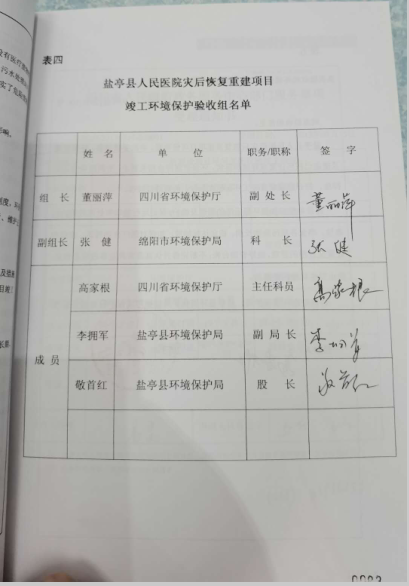 表四
盐亭县人民医院灾后恢复重建项目
竣工环境保护验收组名单
姓 名 单 位 职务/职称 签 字
组 长 董丽萍 四川省环境保护厅 副 处 长 董丽萍
副组长 张 健 绵阳市环境保护局 科 长 张健
成 员
高家根 四川省环境保护厅 主任科员 高家根
李拥军 盐亭县环境保护局 副 局 长
敬首红 盐亭县环境保护局 股 长